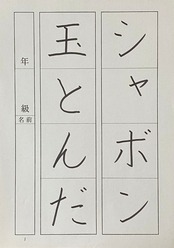 シャボン
玉とんだ
年 級
名前
1